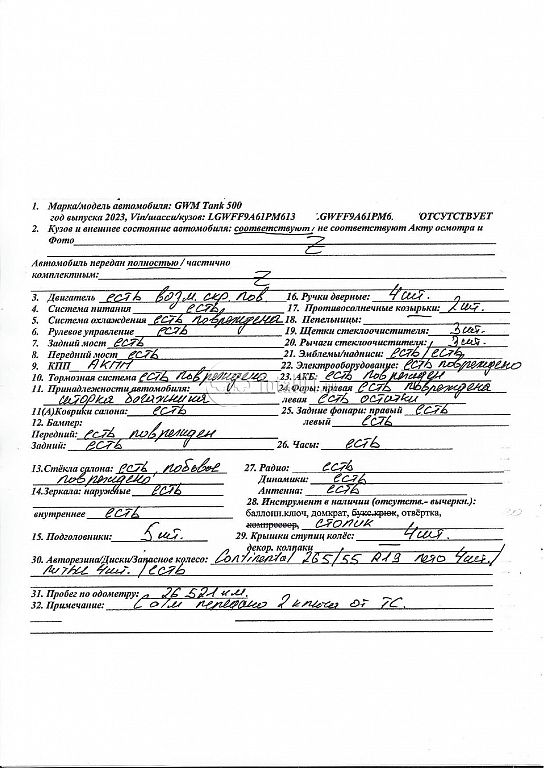 1. Марка/модель автомобиля: GWM Tank 500
год выпуска 2023, Vin/шасси/кузов: LGWFF9A61PM613 .GWFF9A61PM6. ОТСУТСТВУЕТ
2. Кузов и внешнее состояние автомобиля: соответствуют / не соответствуют Акту осмотра и
Фото Z
Автомобиль передан полностью / частично
комплектным: Z
3. Двигатель есть возм. скр. пов. 16. Ручки дверные: 4 шт.
4. Система питания есть 17. Противосолнечные козырьки: 2 шт.
5. Система охлаждения есть повреждена 18. Пепельницы:
6. Рулевое управление есть 19. Щетки стеклоочистителя: 3 шт.
7. Задний мост есть 20. Рычаги стеклоочистителя: 3 шт.
8. Передний мост есть 21. Эмблемы/надписи: есть/есть
9. КПП АКПП 22. Электрооборудование: есть повреждено
10. Тормозная система есть повреждено 23. АКБ: есть поврежден
11. Принадлежности автомобиля: 24. Фары: правая есть повреждена
шторка багажника левая есть остатки
11(А)Коврики салона: есть 25. Задние фонари: правый есть
12. Бампер: левый есть
Передний: есть поврежден
Задний: есть 26. Часы: есть
13.Стёкла салона: есть, лобовое 27. Радио: есть
повреждено Динамики: есть
14.Зеркала: наружные есть Антенна: есть
28. Инструмент в наличии (отсутств.- вычеркн.):
внутреннее есть баллонн.ключ, домкрат, букс.крюк, отвёртка,
компрессор, стопик
15. Подголовники: 5 шт. 29. Крышки ступиц колёс: 4 шт.
декор. колпаки
30. Авторезина/Диски/Запасное колесо: Continental 265/55 R19 лето 4 шт/
литые 4 шт. / есть
31. Пробег по одометру: 26 521 км.
32. Примечание: С а/м передано 2 ключа от ТС.